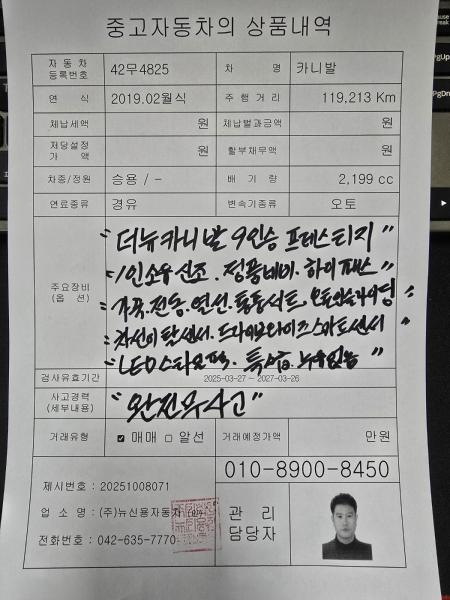 중고자동차의 상품내역
자동차등록번호 42무4825 차 명 카니발
연 식 2019.02월식 주행거리 119,213 Km
체납세액 원 체납벌과금액 원
저당설정가 액 원 할부채무액 원
차종/정원 승용 / - 배 기 량 2,199 cc
연료종류 경유 변속기종류 오토
주요장비(옵 션)
"더뉴카니발 9인승 프레스티지"
"1인소유 신조. 정품네비. 하이패스"
"가죽.전동.열선.통풍시트.
"차선이탈센서. 드라이브와이즈스마트센서"
"LED 누유없음"
검사유효기간 2025-03-27 ~ 2027-03-26
사고경력(세부내용) "완전무사고"
거래유형 ☑ 매매 □ 알선 거래예정가액 만원
010-8900-8450
제시번호 : 20251008071
업 소 명 : (주)뉴신용자동차
전화번호 : 042-635-7770
관 리
담당자